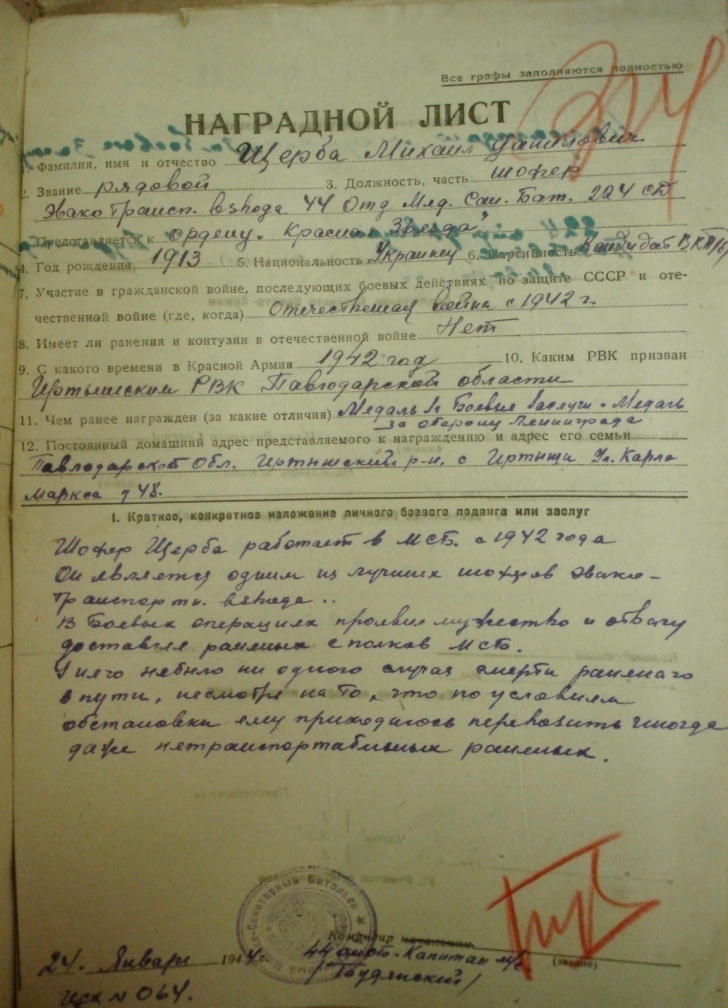 Все графы заполняются полностью
НАГРАДНОЙ ЛИСТ
Фамилия, имя и отчество Щерба Михаил Данилович
2. Звание рядовой 3. Должность, часть шофер
Эвако Трансп. взвода 44 Отд Мед. Сан. Бат. 224 сд
Представляется к ордену "Красная Звезда"
4. Год рождения 1913 5. Национальность Украинец 6. Партийность Кандидат ВКП(б)
7. Участие в гражданской войне, последующих боевых действиях по защите СССР и оте-
чественной войне (где, когда) Отечественная война с 1942 г.
8. Имеет ли ранения и контузии в отечественной войне Нет
9. С какого времени в Красной Армии 1942 год 10. Каким РВК призван
Иртышским РВК Павлодарской области
11. Чем ранее награжден (за какие отличия) Медаль За Боевые Заслуги Медаль
за оборону Ленинграда
12. Постоянный домашний адрес представляемого к награждению и адрес его семьи
Павлодарской Обл. Иртышский р-н. с Иртышн Ул. Карла
Маркса д 48.
I. Краткое, конкретное изложение личного боевого подвига или заслуг
Шофер Щерба работает в МСБ. с 1942 года
Он является одним из лучших шоферов Эвако-
Транспортн. взвода..
В Боевых операциях проявил мужество и отвагу
доставляя раненых с полков МСБ.
У него небыло ни одного случая смерти раненаго
в пути, несмотря на то, что по условиям
обстановки ему приходилось перевозить иногда
даже нетранспортабильных раненых.
Командир
24. Января 1944 г. 44 омсб. Капитан м/с.
(звание)
исх N 064.